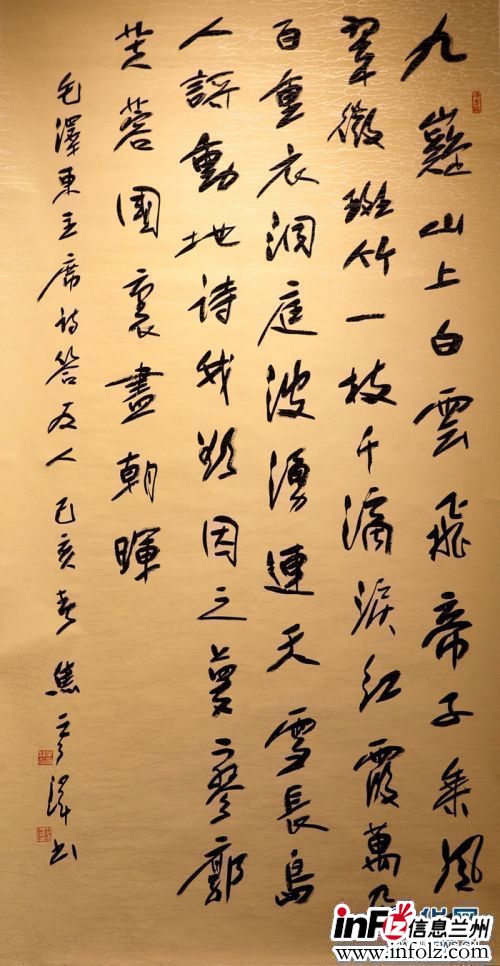 九嶷山上白雲飛帝子乘風
翠微斑竹一枝千滴淚紅霞萬
百重衣洞庭波湧連天雪長島
人謌動地詩我欲因之夢寥廓
芙蓉國裏盡朝暉
毛澤東主席詩答友人 己亥春 焦 书
infLz 信息兰州
www.infolz.com